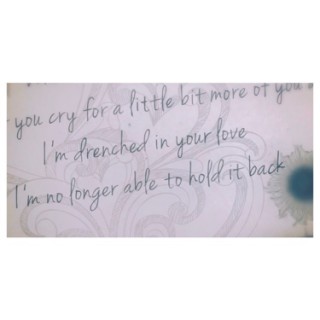 you cry for a little bit more of you
I'm drenched in your love
I'm no longer able to hold it back